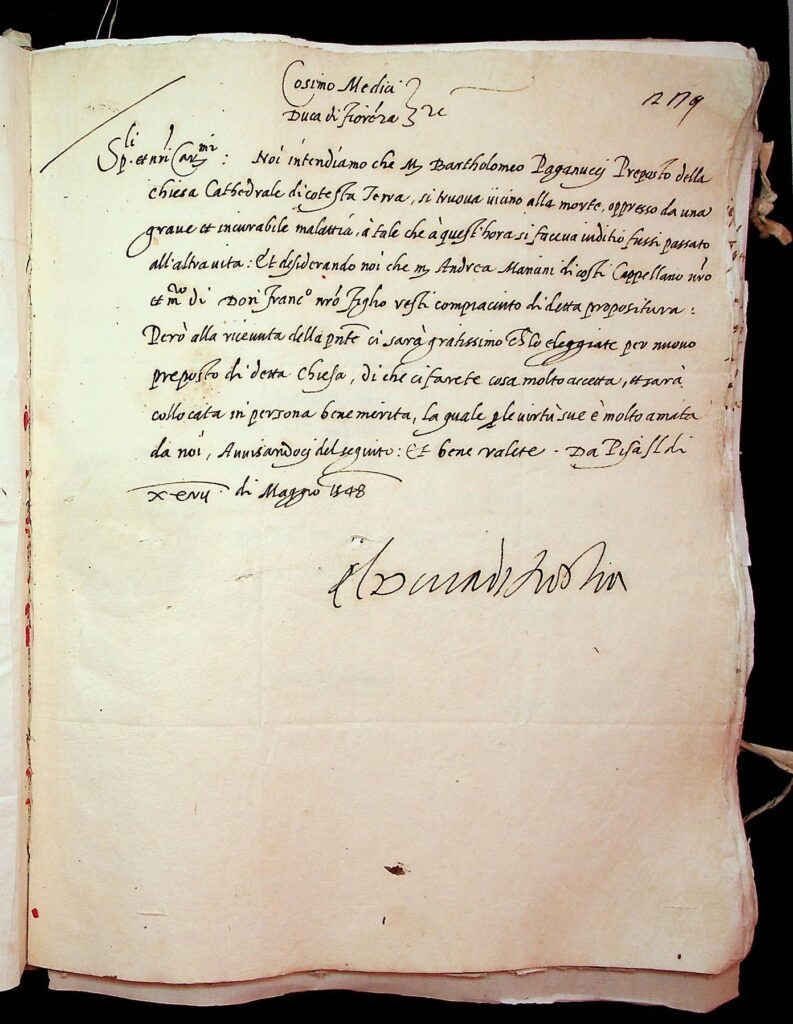 Cosimo Medici
Duca di Fiorẽza &c
279
Sp.li et nri Car.mi : Noi intendiamo che M. Bartholomeo Paganucci Preposto della
chiesa Cathedrale di cotesta Terra, si truova vicino alla morte, oppresso da una
grave et incurabile malattia, à tale che à quest'hora si faceva iuditio fussi passato
all'altra vita : Et desiderando noi che m Andrea Mariani di costi Cappellano nrõ
et m.ro di Don Franc.o nrõ Figlio resti compiaciuto di detta propositura :
Però alla ricevuta della pnte ci sarà gratissimo ch lo eleggiate per nuovo
preposto di detta Chiesa, di che ci farete cosa molto accetta, et sarà
collocata in persona benemerita, la quale p le virtù sue è molto amata
da noi, Avvisandoci del seguito : Et bene valete . Da Pisa li di
di Maggio 1548
El Duca di